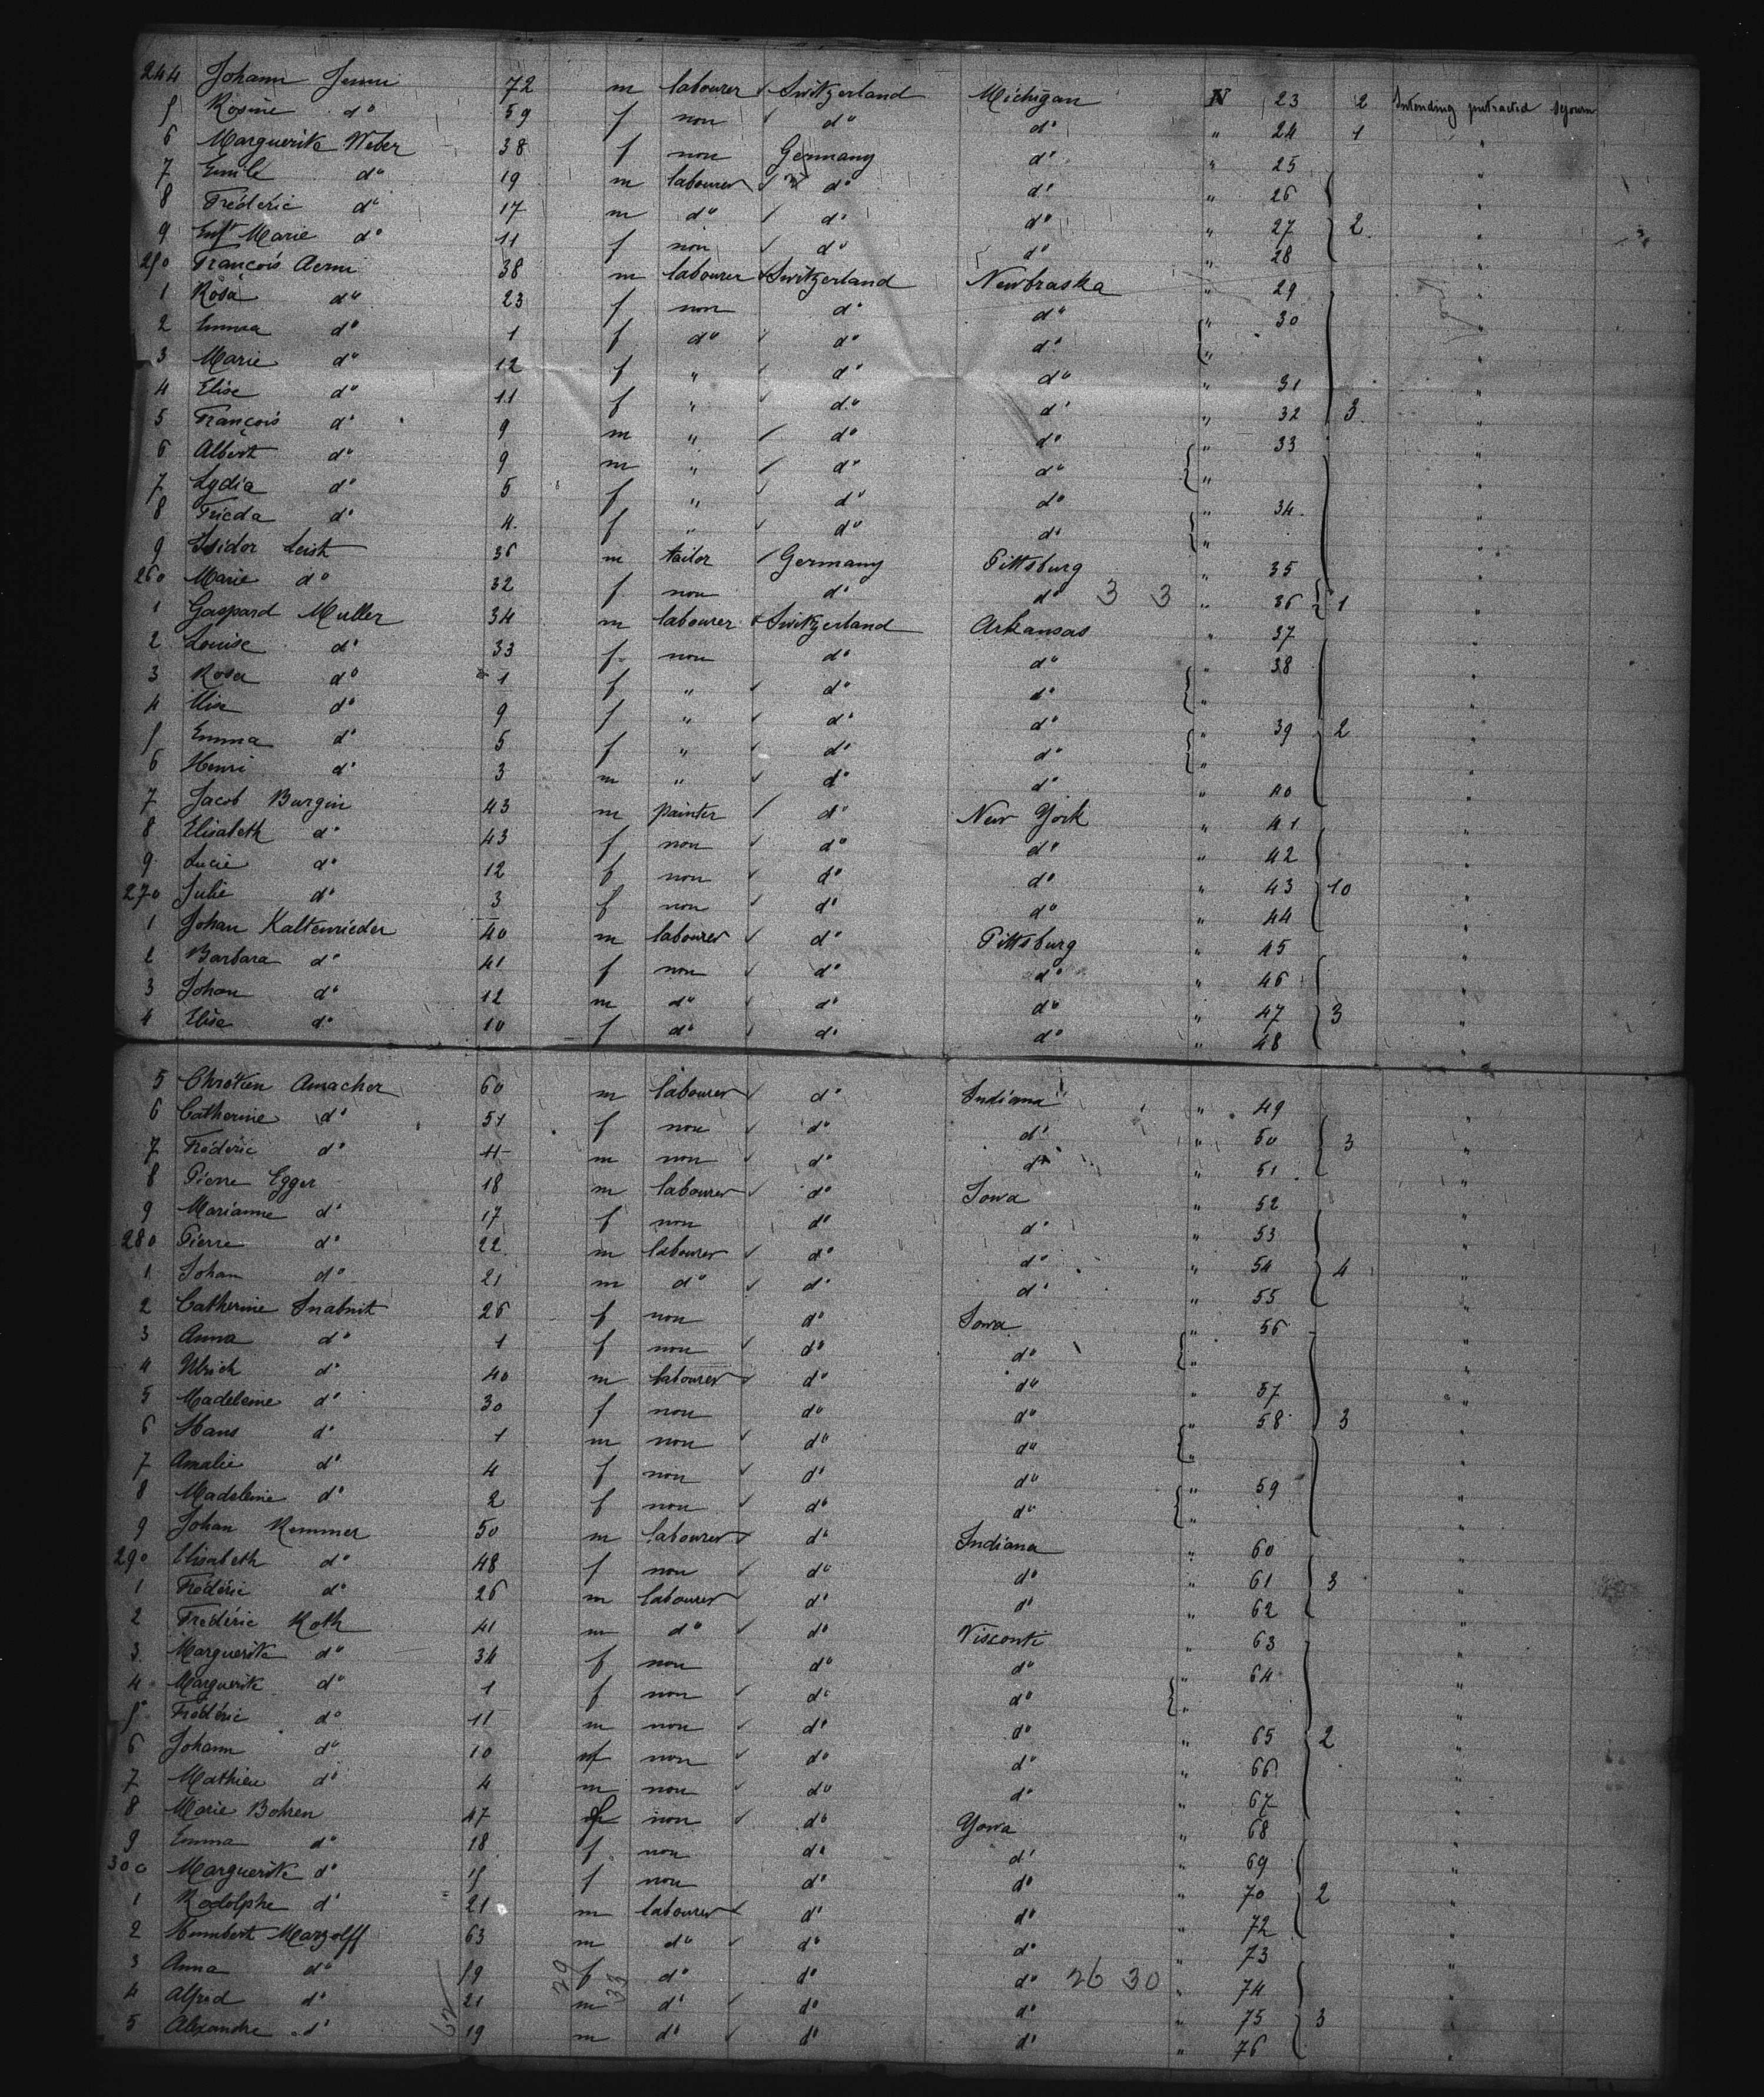 244 Johann Jenni 72 m labourer Switzerland Michigan N 23 2 Intending protracted sojourn
5 Rosine do 59 f non do do " 24 1 "
6 Marguerite Weber 38 f non Germany do " 25 "
7 Emile do 19 m labourer do do " 26 "
8 Fréderic do 17 m do do do " 27 2 "
9 Enft Marie do 11 f non do do " 28 "
250 François Aerni 38 m labourer Switzerland Newbraska " 29 "
1 Rosa do 23 f non do do " 30 "
2 Emma do 1 f do do do " "
3 Marie do 12 f " do do " 31 "
4 Elise do 11 f " do do " 32 3 "
5 François do 9 m " do do " 33 "
6 Albert do 9 m " do do " "
7 Lydia do 5 f " do do " 34 "
8 Frieda do 4 f " do do " "
9 Isidor Leist 36 m tailor Germany Pittsburg " 35 "
260 Marie do 32 f non do do 3 3 " 36 1 "
1 Gaspard Muller 34 m labourer Switzerland Arkansas " 37 "
2 Louise do 33 f non do do " 38 "
3 Rosa do 1 f " do do " "
4 Elise do 9 f " do do " 39 2 "
5 Emma do 5 f " do do " "
6 Henri do 3 m " do do " 40 "
7 Jacob Burgin 43 m painter do New York " 41 "
8 Elisabeth do 43 f non do do " 42 "
9 Lucie do 12 f non do do " 43 10 "
270 Julie do 3 f non do do " 44 "
1 Johan Kaltenrieder 40 m labourer do Pittsburg " 45 "
2 Barbara do 41 f non do do " 46 "
3 Johan do 12 m do do do " 47 3 "
4 Elise do 10 f do do do " 48 "
5 Chrétien Amacher 60 m labourer do Indiana " 49 "
6 Catherine do 51 f non do do " 50 3 "
7 Fréderic do 11 m non do do " 51 "
8 Pierre Egger 18 m labourer do Iowa " 52 "
9 Marianne do 17 f non do do " 53 "
280 Pierre do 22 m labourer do do " 54 4 "
1 Johan do 21 m do do do " 55 "
2 Catherine Inabnit 26 f non do Iowa " 56 "
3 Anna do 1 f non do do " "
4 Ulrich do 40 m labourer do do " 57 "
5 Madeleine do 30 f non do do " 58 3 "
6 Hans do 1 m non do do " "
7 Amalie do 4 f non do do " 59 "
8 Madeleine do 2 f non do do " "
9 Johan Remmer 50 m labourer do Indiana " 60 "
290 Elisabeth do 48 f non do do " 61 3 "
1 Fréderic do 26 m labourer do do " 62 "
2 Fredéric Roth 41 m do do Visconti " 63 "
3 Marguerite do 34 f non do do " 64 "
4 Marguerite do 1 f non do do " "
5 Fréderic do 11 m non do do " 65 2 "
6 Johann do 10 m non do do " 66 "
7 Mathieu do 4 m non do do " 67 "
8 Marie Bohren 47 f non do Yowa " 68 "
9 Emma do 18 f non do do " 69 "
300 Marguerite do 15 f non do do " 70 2 "
1 Rodolphe do 21 m labourer do do " 72 "
2 Humbert Marzolff 63 m do do do " 73 "
3 Anna do 59 f do do do 26 30 " 74 "
4 Alfred do 21 m do do do " 75 3 "
5 Alexandre do 19 m do do do " 76 "